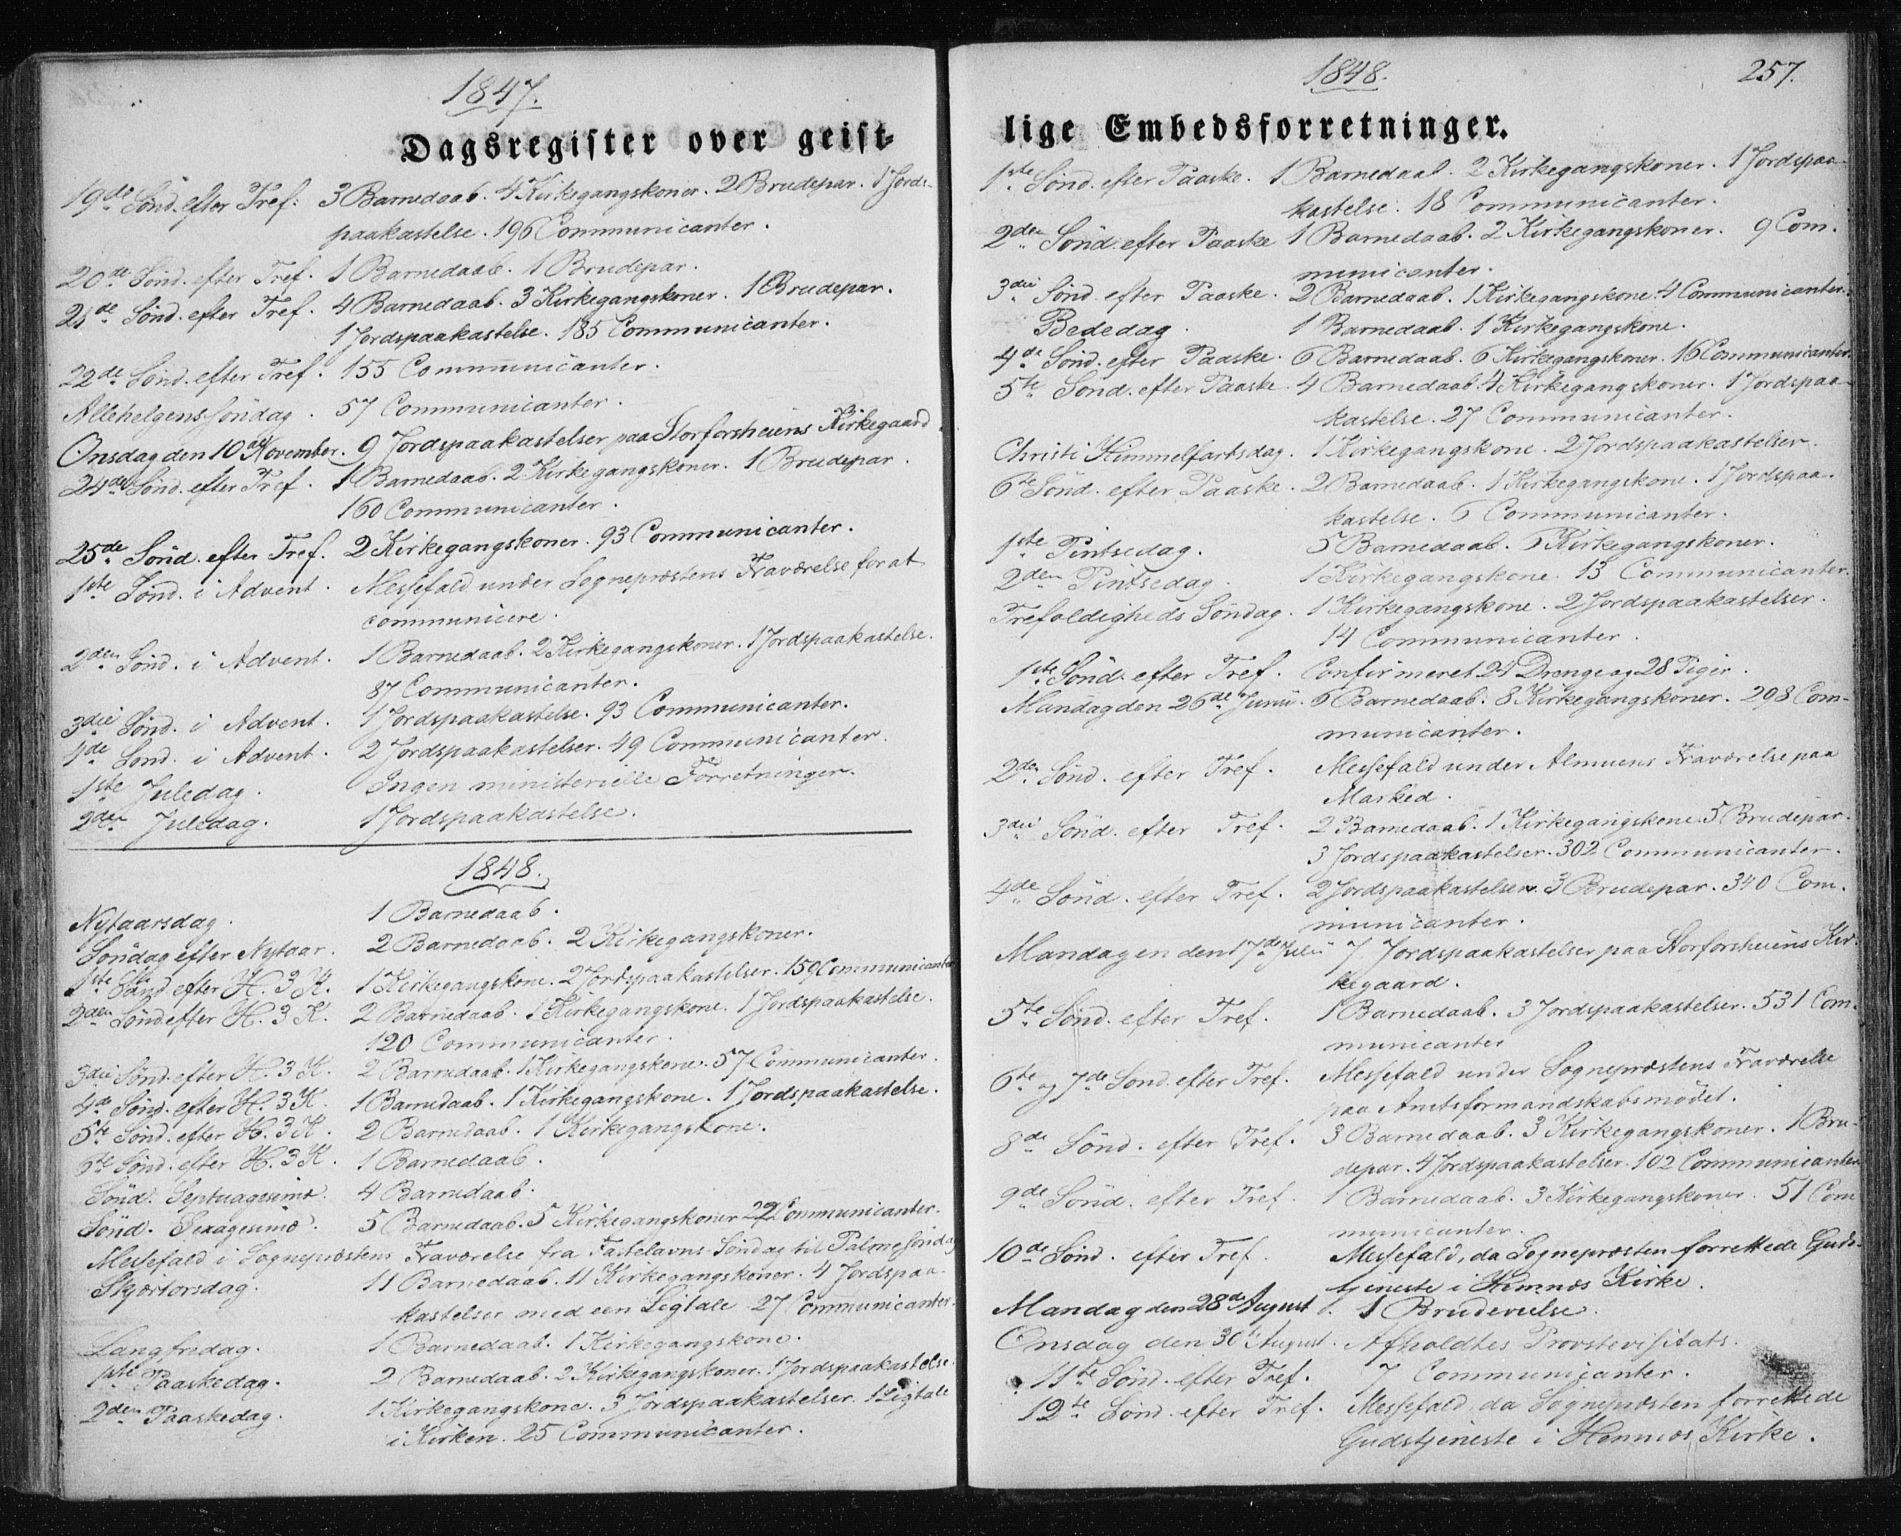 1847.
Dagsregister over geist-
19de Sönd. efter Tref. 3 Barnedaab. 4 Kirkegangskoner. 2 Brudepar. 1 Jords-
paakastelse. 196 Communicanter.
20de Sönd. efter Tref. 1 Barnedaab. 1 Brudepar.
21de Sönd. efter Tref. 4 Barnedaab. 3 Kirkegangskoner. 1 Brudepar.
1 Jordspaakastelse. 185 Communicanter.
22de Sönd. efter Tref. 155 Communicanter.
Allehelgens Söndag. 57 Communicanter.
Onsdag den 10de November. 9 Jordspaakastelser paa Storforsheiens Kirkegaard.
24de Sönd. efter Tref. 1 Barnedaab. 2 Kirkegangskoner. 1 Brudepar.
160 Communicanter.
25de Sönd. efter Tref. 2 Kirkegangskoner. 93 Communicanter.
1ste Sönd. i Advent. Messefald under Sognepræstens Fraværelse for at
communicere.
2den Sönd. i Advent. 1 Barnedaab. 2 Kirkegangskoner. 1 Jordspaakastelse.
87 Communicanter.
3die Sönd. i Advent. 1 Jordspaakastelse. 93 Communicanter.
4de Sönd. i Advent. 2 Jordspaakastelser. 49 Communicanter.
1ste Juledag. Ingen ministerielle Forretninger.
2den Juledag. 1 Jordspaakastelse.
1848.
Nytaarsdag. 1 Barnedaab.
Söndag efter Nytaar. 2 Barnedaab. 2 Kirkegangskoner.
1ste Sönd efter H. 3 K. 1 Kirkegangskone. 2 Jordspaakastelser. 159 Communicanter
2den Sönd efter H. 3 K. 2 Barnedaab. 1 Kirkegangskone. 1 Jordspaakastelse.
120 Communicanter.
3die Sönd. efter H. 3 K. 2 Barnedaab. 1 Kirkegangskone. 57 Communicanter.
4de Sönd. efter H. 3 K. 1 Barnedaab. 1 Kirkegangskone. 1 Jordspaakastelse.
5te Sönd. efter H. 3 K. 2 Barnedaab. 1 Kirkegangskone.
6te Sönd. efter H. 3 K. 1 Barnedaab.
Sönd. Septuagesimæ. 4 Barnedaab.
Sönd. Sexagesimæ. 5 Barnedaab. 5 Kirkegangskoner 22 Communicanter.
Messefald i Sognepræstens Fraværelse fra Fastelavns-Söndag til Palmesöndag
Skjærtorsdag. 11 Barnedaab. 11 Kirkegangskoner. 4 Jordspaa-
kastelser med een Ligtale 27 Communicanter.
Langfredag. 1 Barnedaab. 1 Kirkegangskone.
1ste Paaskedag. 2 Barnedaab. 2 Kirkegangskoner. 1 Jordspaakastelse.
2den Paaskedag. 1 Kirkegangskone. 3 Jordspaakastelser. 1 Ligtale
i Kirken. 25 Communicanter.
1848. 257.
lige Embedsforretninger.
1ste Sönd. efter Paaske. 1 Barnedaab. 2 Kirkegangskoner. 1 Jordspaa-
kastelse. 18 Communicanter.
2den Sönd. efter Paaske 1 Barnedaab. 2 Kirkegangskoner. 9 Com-
municanter.
3die Sönd. efter Paaske. 2 Barnedaab. 1 Kirkegangskone. 4 Communicanter.
Bededag. 1 Barnedaab. 1 Kirkegangskone.
4de Sönd. efter Paaske. 6 Barnedaab. 6 Kirkegangskoner. 16 Communicanter.
5te Sönd. efter Paaske. 4 Barnedaab. 4 Kirkegangskoner. 1 Jordspaa-
kastelse. 27 Communicanter.
Christi Himmelfartsdag. 1 Kirkegangskone. 2 Jordspaakastelser.
6te Sönd. efter Paaske. 2 Barnedaab. 1 Kirkegangskone. 1 Jordspaa-
kastelse. 6 Communicanter.
1ste Pintsedag. 5 Barnedaab. 5 Kirkegangskoner.
2den Pintsedag. 1 Kirkegangskone. 13 Communicanter.
Trefoldigheds Söndag. 1 Kirkegangskone. 2 Jordspaakastelser.
14 Communicanter.
1ste Sönd. efter Tref. Confirmeret 24 Drenge og 28 Piger.
Mandag den 26de Junii. 6 Barnedaab. 8 Kirkegangskoner. 298 Com-
municanter.
2den Sönd. efter Tref. Messefald under Almuens Fraværelse paa
Marked.
3die Sönd. efter Tref. 2 Barnedaab. 1 Kirkegangskone. 5 Brudepar.
3 Jordspaakastelser. 302 Communicanter.
4de Sönd. efter Tref. 2 Jordspaakastelser. 3 Brudepar. 340 Com-
municanter.
Mandagen den 17de Julii 7 Jordspaakastelser paa Storforsheiens Kir-
kegaard.
5te Sönd. efter Tref. 1 Barnedaab. 3 Jordspaakastelser. 531 Com-
municanter
6te og 7de Sönd. efter Tref. Messefald under Sognepræstens Fraværelse
paa Amtsformandskabsmødet.
8de Sönd. efter Tref. 3 Barnedaab. 3 Kirkegangskoner. 1 Bru-
depar. 4 Jordspaakastelser. 102 Communicanter
9de Sönd. efter Tref. 1 Barnedaab. 3 Kirkegangskoner. 51 Com-
municanter.
10de Sönd. efter Tref Messefald, da Sognepræsten forrettede Guds-
tjeneste i Hemnæs Kirke.
Mandag den 28de August. 1 Brudevielse.
Onsdag den 30te August. Afholdtes Provstevisitats.
11te Sönd. efter Tref. 7 Communicanter.
12te Sönd. efter Tref. Messefald, da Sognepræsten forrettede
Gudstjeneste i Hemnæs Kirke.